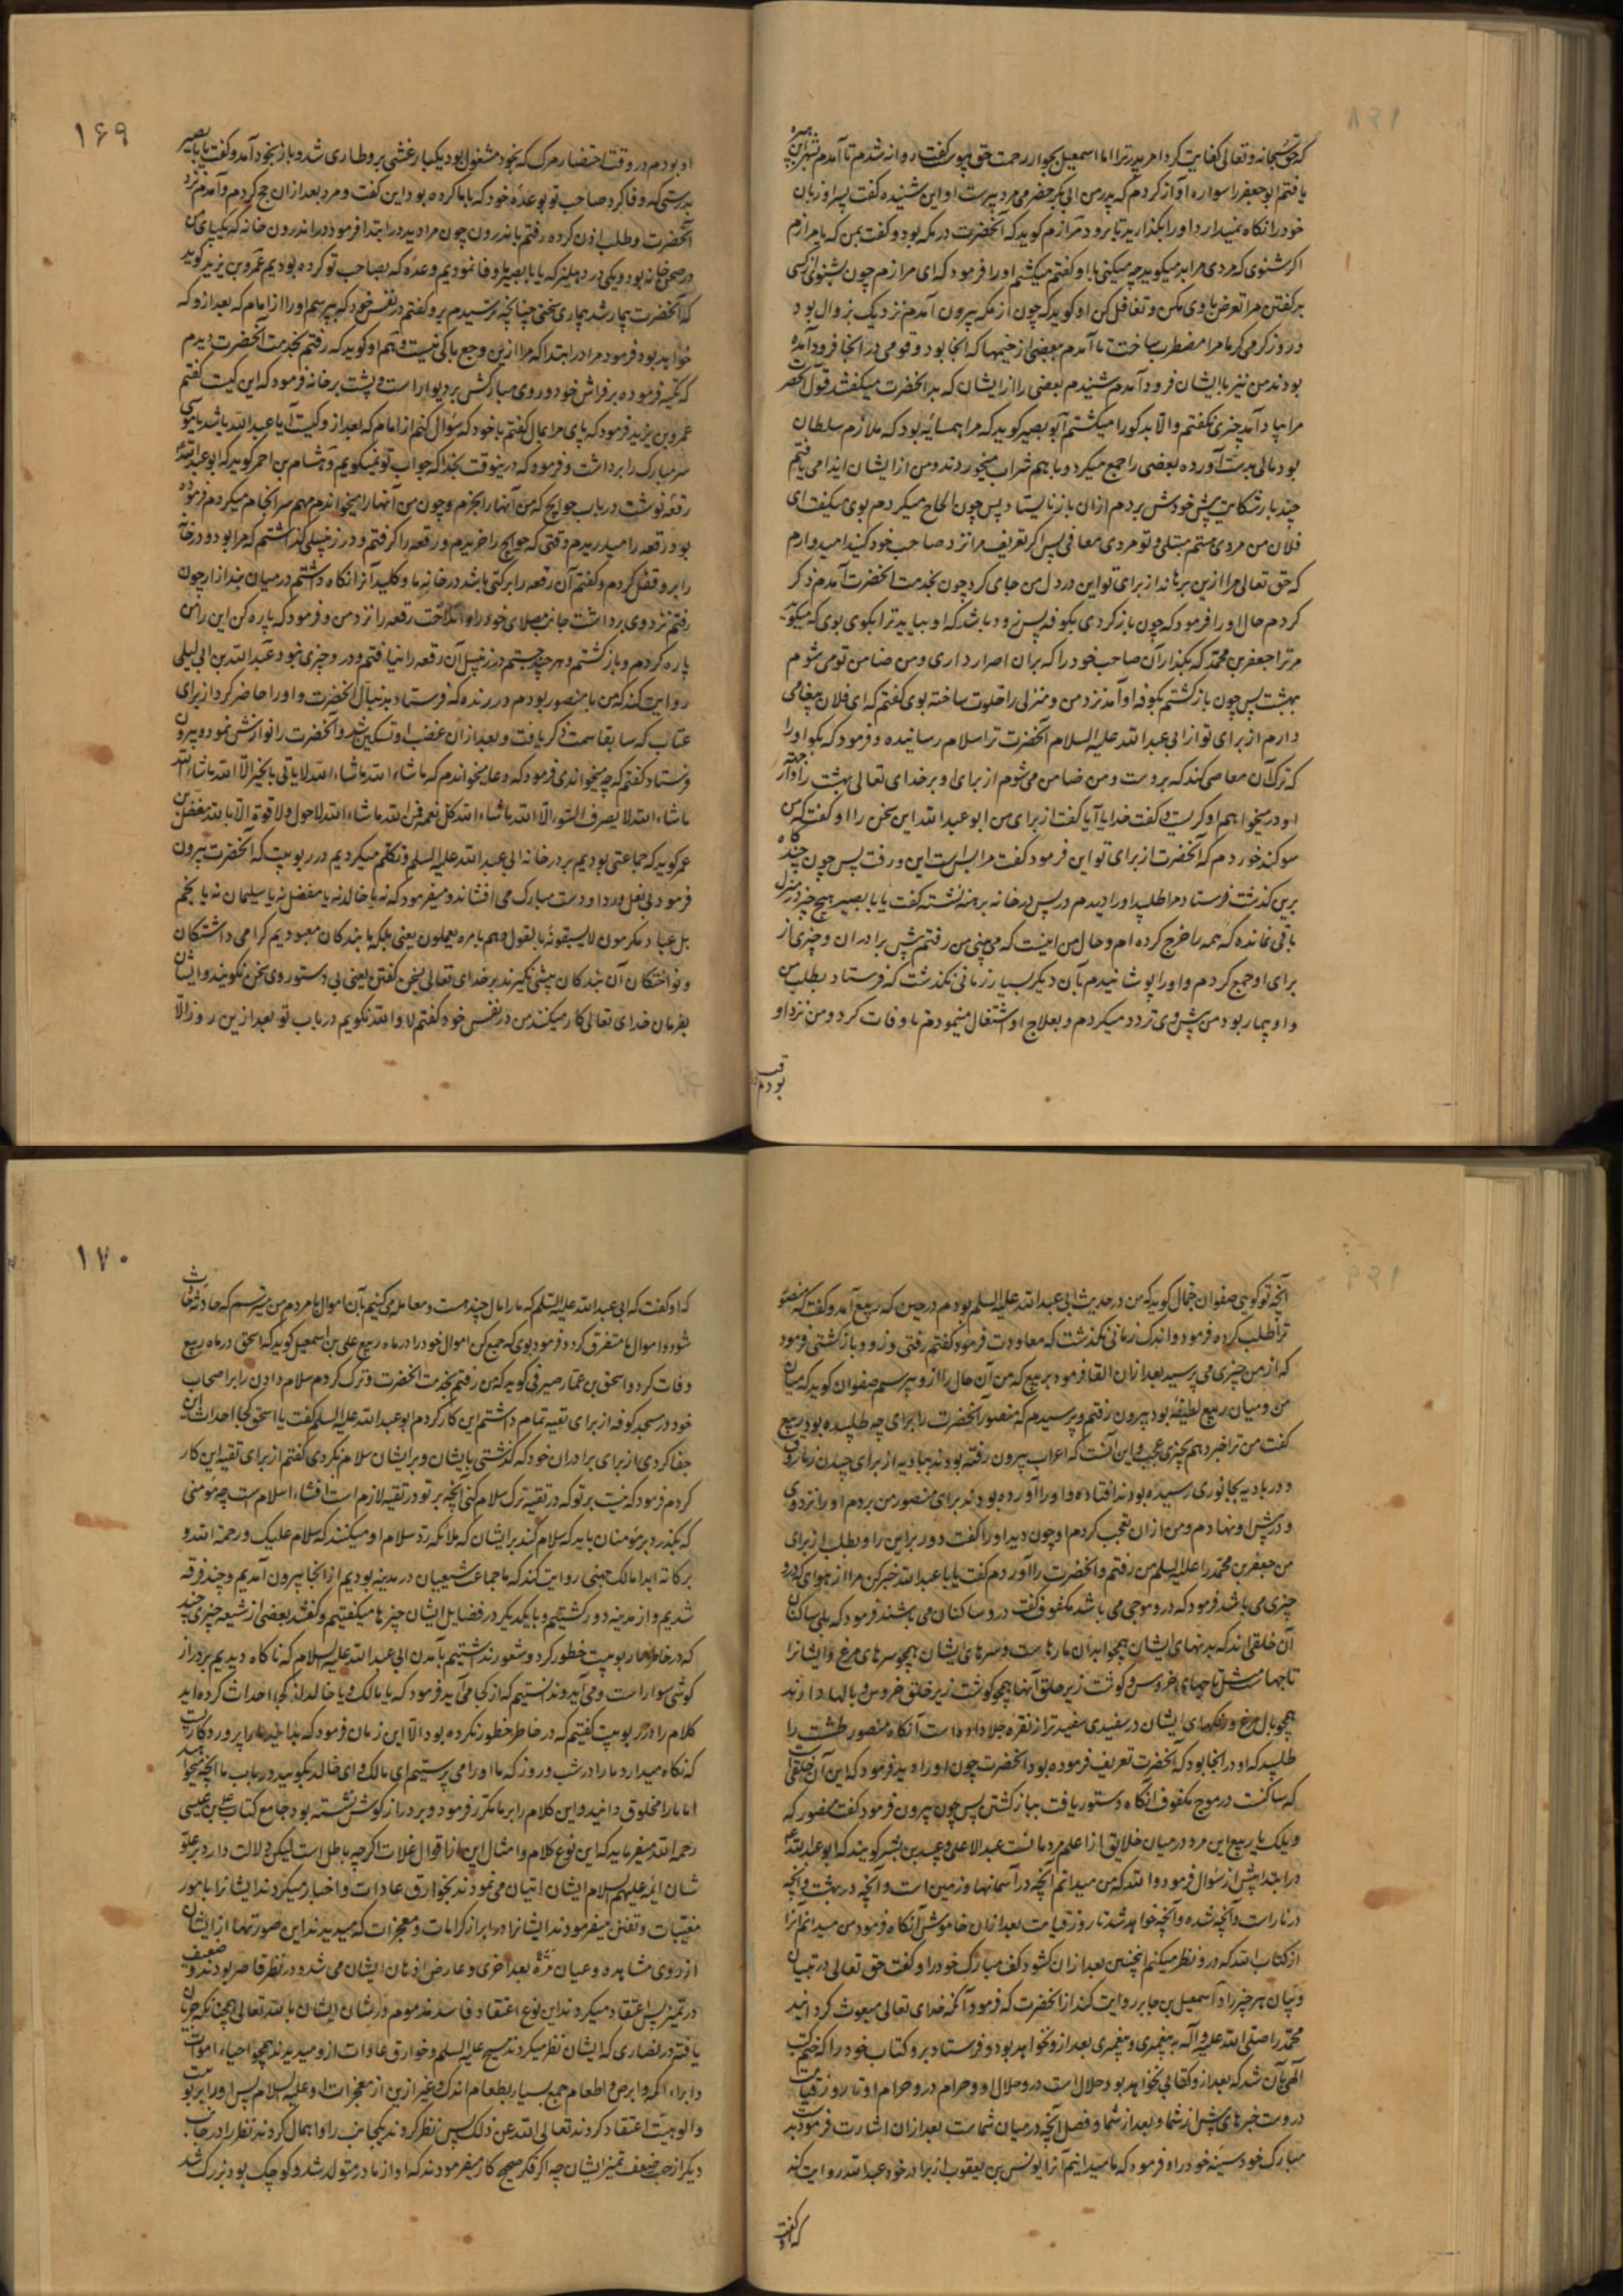 که حق سبحانه و تعالی کفایت کرد امر پدر ترا اما اسمعیل بجوار رحمت حق پیوست گفت روانه شدم تا آمدم
یافتم ابو جعفر را سواره آواز کردم که پدر من ابی بکر حضرمی مرد پیرست او این شنیده گفت پسر او زبان
خود را نگاه نمیدارد او را بگذارید تا برود مرازم گوید که آنحضرت در مکه بود و گفت بمن که یا مرازم
اگر شنوی که مردی مرا بد میگوید چه میکنی با او گفتم میکشم او را فرمود که ای مرازم چون بشنوی از کسی
بد گفتن مرا تعرض با وی مکن و تغافل کن او گوید که چون از مکه بیرون آمدم نزدیک بزوال بود
در روز گرمی گرما مرا مضطر ساخت تا آمدم ببعضی از خیمها که آنجا بود و قومی در آنجا فرود آمده
بودند من نیز با ایشان فرود آمدم شنیدم بعضی را از ایشان که بد آنحضرت میگفتند قول آنحضرت
مرا بیاد آمد چیزی نگفتم و الا بد گو را میکشتم ابو بصیر گوید که مرا همسایه بود که ملازم سلطان
بود مالی بدست آورده بعضی را جمع میکرد و با هم شراب میخوردند و من از ایشان ایذا می یافتم
چند بار شکایت پیش خودش بردم ازان باز نایستاد پس چون الحاح میکردم بوی میگفت ای
فلان من مردی هستم مبتلی و تو مردی معافی پس اگر تعریف مرا نزد صاحب خود کنی امیدوارم
که حق تعالی مرا ازین برهاند از برای تو این در دل من جای کرد چون بخدمت آنحضرت آمدم ذکر
کردم حال او را فرمود که چون باز گردی بکوفه پس زود باشد که او بیاید ترا بگوی بوی که میگوید
مر ترا جعفر بن محمد که بگذار آن صاحب خود را که بران اصرار داری و من ضامن تو می شوم
بهشت پس چون بازگشتم بکوفه او آمد نزد من و منزلی را خلوت ساخته بوی گفتم که ای فلان پیغامی
دارم از برای تو از ابی عبد الله علیه السلام آنحضرت ترا سلام رسانیده و فرمود که بگو او را
که ترک آن معاصی کند که بروست و من ضامن می شوم از برای او بر خدای تعالی بهشت را
او گریست و گفت خدایا آیا گفت از برای من ابو عبد الله این سخن را او گفت که من
سوگند خوردم که آنحضرت از برای تو این فرمود گفت مرا بس است این و رفت پس چون چند گاه
برین گذشت فرستاد مرا طلبید او را دیدم در پس در خانه برهنه نشسته گفت یا با بصیر هیچ چیز در منزل
باقی نمانده که همه را خرج کرده ام و حال من اینست که می بینی من رفتم پیش برادران و چیزی از
برای او جمع کردم و او را پوشانیدم بآن دیگر بسیار زمانی نگذشت که فرستاد بطلب من
و او بیمار بود من پیش وی تردد میکردم و بعلاج او اشتغال مینمودم تا وفات کرد و من نزد او
بودم
۱۶۹
او بودم در وقت احتضار مرگ که بخود مشغول بود یکبار غشی برو طاری شد و باز بخود آمد و گفت یا با بصیر
بدرستی که وفا کرد صاحب تو بوعده خود که با ما کرده بود این گفت و مرد بعد ازان حج کردم و آمدم نزد
آنحضرت و طلب اذن کرده رفتم باندرون چون مرا دید در ابتدا فرمود در اندرون خانه که یکپای من
در صحن خانه بود و یکی در دهلیز که یا با بصیر ما وفا نمودیم وعده که بصاحب تو کرده بودیم عمرو بن یزید گوید
که آنحضرت بیمار شد بیماری سختی چنانچه ترسیدم برو گفتم در نفس خود که بپرسم او را از امام که بعد ازو که
خواهد بود فرمود مرا در ابتدا که مرا ازین وجع باکی نیست و هم او گوید که رفتم بخدمت آنحضرت دیدم
که تکیه فرموده بر فراش خود و روی مبارکش بر دیوار است و پشت بر خانه فرمود که این کیست گفتم
عمرو بن یزید فرمود که پای مرا بمال گفتم با خود که سؤال کنم از امام که بعد ازو کیست آیا عبد الله باشد یا موسی
سر مبارک را برداشت و فرمود که درینوقت بخدا که جواب تو نمیگویم و هشام بن احمر گوید که ابو عبد الله
رقعه نوشت در باب حوایج که من آنها را بخرم و چون من آنها را میخواندم مهم سرانجام میکردم فرموده
بود رقعه را میدریدم وقتی که حوایج را خریدم و رقعه را گرفتم و در زنبیلی گذاشتم که مرا بود و در خانه
را برو قفل کردم و گفتم آن رقعه را برکتی باشد در خانه ما و کلید آنرا نگاه داشتم در میان بند ازار چون
رفتم نزد وی برداشت جانماز مصلای خود را و انداخت رقعه را نزد من و فرمود که پاره کن این را من
پاره کردم و بازگشتم و هر چند جستم در زنبیل آن رقعه را نیافتم و درو چیزی نبود عبد الله بن ابی لیلی
روایت کند که من با منصور بودم در ربذه که فرستاد بدنبال آنحضرت و او را حاضر کرد از برای
عتاب که سابقا سمت ذکر یافت و بعد ازان غضب او تسکین شد و آنحضرت را نوازش نمود و بیرون
فرستاد گفتم که چه میخواندی فرمود که دعا میخواندم که ما شاء الله ما شاء الله لا یاتی بالخیر الا الله ما شاء الله
ما شاء الله لا یصرف السوء الا الله ما شاء الله کل نعمة فمن الله ما شاء الله لا حول و لا قوة الا بالله مفضل بن
عمر گوید که جماعتی بودیم بر در خانه ابی عبد الله علیه السلم و تکلم میکردیم در ربوبیت که آنحضرت بیرون
فرمود بی نعل و ردا و دست مبارک می افشاند و میفرمود که نه یا خالد نه یا مفضل نه یا سلیمان نه یا نجم
بل عباد مکرمون لا یسبقونه بالقول و هم بامره یعملون یعنی بلکه ما بندگان معبودیم گرامی داشتگان
و نواختگان آن بندگان پیشی نگیرند بر خدای تعالی بسخن گفتن یعنی بی دستور وی سخن نگویند و ایشان
بفرمان خدای تعالی کار میکنند من در نفس خود گفتم لا والله نگویم در باب تو بعد ازین روز الا
آنچه تو گوئی صفوان جمال گوید که من در حدیث ابی عبد الله علیه السلم بودم در حین که ربیع آمد و گفت که منصور
ترا طلب کرده فرمود و اندک زمانی نگذشت که معاودت فرمود گفتم رفتی و زود بازگشتی فرمود
که از من چیزی می پرسید بعد ازان القا فرمود بربیع که من آن حال را ازو بپرسم صفوان گوید که میان
من و میان ربیع لطیفه بود بیرون رفتم و پرسیدم که منصور آنحضرت را برای چه طلبیده بود ربیع
گفت من ترا خبر دهم بچیزی عجب و این آنست که اعراب بیرون رفته بودند ببادیه از برای چیدن
و در بادیه بجانوری رسیده بودند افتاده و او را آورده بودند برای منصور من بردم او را نزد وی
و در پیش او نهادم و من ازان تعجب کردم او چون دید او را گفت دور بر این را و بطلب از برای
من جعفر بن محمد را علیه السلم من رفتم و آنحضرت را آوردم گفت یا با عبد الله خبر کن مرا از هوای که درو
چیزی می باشد فرمود که درو موجی می باشد مکفوف گفت درو ساکنان می باشند فرمود که بلی ساکنان
آن خلقی اند که بدنهای ایشان همچو ابدان مارهاست و سرهای ایشان همچو سرهای مرغ و ایشانرا
تاجها مثل تاجهای خروس و گوشت زیر حلق آنها همچو گوشت زیر حلق خروس و بالها دارند
همچو بال مرغ و ایشان در سفیدی سفیدتر از نقره جلا داده است آنگاه منصور طشت را
طلبید که او در آنجا بود که آنحضرت تعریف فرموده بود آنحضرت چون او را دید فرمود که این آن خلق است
که ساکنست در موج مکفوف آنگاه دستور یافت ببازگشتن پس چون بیرون فرمود گفت منصور که
ویلک یا ربیع این مرد در میان خلایق از اعلم مردمانست عبد الاعلی و عبیده بن بشر گویند که ابو عبد الله
در ابتدا پیش از سؤال فرمود والله که من میدانم آنچه در آسمانها و زمین است و آنچه در بهشت و آنچه
در نار است و آنچه شده و آنچه خواهد شد تا روز قیامت بعد ازان خاموش آنگاه فرمود من میدانم آنرا
از کتاب الله که درو نظر میکنم اینچنین بعد ازان گشود کف مبارک خود را و گفت حق تعالی در تبیان
و بیان هر چیز را و اسمعیل بن جابر روایت کند از آنحضرت که فرمود آنکه خدای تعالی مبعوث گردانید
محمد را صلی الله علیه و آله به پیغمبری و پیغمبری بعد ازو نخواهد بود و فرستاد برو کتاب خود را که ختم کتب
الهی بآن شد که بعد ازو کتابی نخواهد بود حلال است درو حلال او و حرام درو حرام او تا روز قیامت
دروست خبرهای پیش از شما و بعد از شما و فصل آنچه در میان شماست بعد ازان اشارت فرمود بید
مبارک خود بسینه خود را و فرمود که ما میدانیم آنرا یونس بن یعقوب از برادر خود عبد الله روایت کند
که او گفت
۱۷۰
که او گفت که ابی عبد الله علیه السلم که مارا مال چند هست و معامله می کنیم بآن اموال با مردم من میترسم که حادثه حادث
شود و اموال ما متفرق گردد فرمود بوی که جمع کن اموال خود را در ماه ربیع علی بن اسمعیل گوید که اسحق در ماه ربیع
وفات کرد و اسحق بن عمار صیرفی گوید که من رفتم بخدمت آنحضرت و ترک کردم سلام دادن را بر اصحاب
خود در مسجد کوفه از برای تقیه تمام داشتم این کار کردم ابو عبد الله علیه السلم گفت یا اسحق کجا احداث این
جفا کردی از برای برادران خود که گذشتی بایشان و بر ایشان سلام نکردی گفتم از برای تقیه این کار
کردم فرمود که نیست بر تو که در تقیه ترک سلام کنی آنچه بر تو در تقیه لازم است افشاء اسلام است چه مؤمنی
که بگذرد بر مؤمنان باید که سلام کند بر ایشان که ملائکه رد سلام او میکنند که سلام علیک و رحمة الله و
برکاته ابدا مالک جهنی روایت کند که ما جماعت شیعیان در مدینه بودیم از آنجا بیرون آمدیم و چند فرقه
شدیم و از مدینه دور گشتیم و با یکدیگر در فضایل ایشان چیزها میگفتیم و گفتند بعضی از شیعه چیزی چند
که در خاطر ما ربوبیت خطور کرد و شعور نداشتیم بآمدن ابی عبد الله علیه السلام که ناگاه دیدیم بر دراز
گوشی سوار است و می آید و ندانستیم که از کجا می آید فرمود که یا مالک و یا خالد از کجا احداث کرده اید
کلام را در ربوبیت گفتیم که در خاطر خطور نکرده بود الا این زمان فرمود که بدانید ما را پروردگاریست
که نگاه میدارد ما را در شب و روز که ما او را می پرستیم ای مالک و ای خالد بگویید در باب ما آنچه میخواهید
اما ما را مخلوق دانید و این کلام را بر ما مکرر فرمود و بر درازگوش نشسته بود جامع کتاب علی بن عیسی
رحمه الله میفرماید که این نوع کلام و امثال این از اقوال غلات اگر چه باطل است لیکن دلالت دارد بر علو
شان ائمه علیهم السلام ایشان اتیان می نمودند بخوارق عادات و اخبار میکردند ایشانرا بامور
مغیبات و تفنن میفرمودند ایشانرا در ابراز کرامات و معجزات که میدیدند این صورتها از ایشان
از روی مشاهده و عیان مرة بعد اخری و عارض اذهان ایشان می شد و در نظر قاصر بودند و ضعیف
در تمیز پس اعتقاد میکردند این نوع اعتقاد فاسد مذموم در شان ایشان بالله تعالی همچنانکه جریان
یافته در نصاری که ایشان نظر میکردند مسیح علیه السلم و خوارق عادات ازو میدیدند همچو احیاء اموات
و ابراء اکمه و ابرص و اطعام جمع بسیار بطعام اندک و غیر ازین از معجزات او علیه السلام پس او را بربوبیت
و الوهیت اعتقاد کردند تعالی الله عن ذلک پس نظر کردند بیکجانب را و اهمال کردند نظر را در جانب
دیگر از حیث ضعف تمیز ایشان چه اگر فکر صحیح کار میفرمودند که او از مادر متولد شد و کوچک بود بزرگ شد